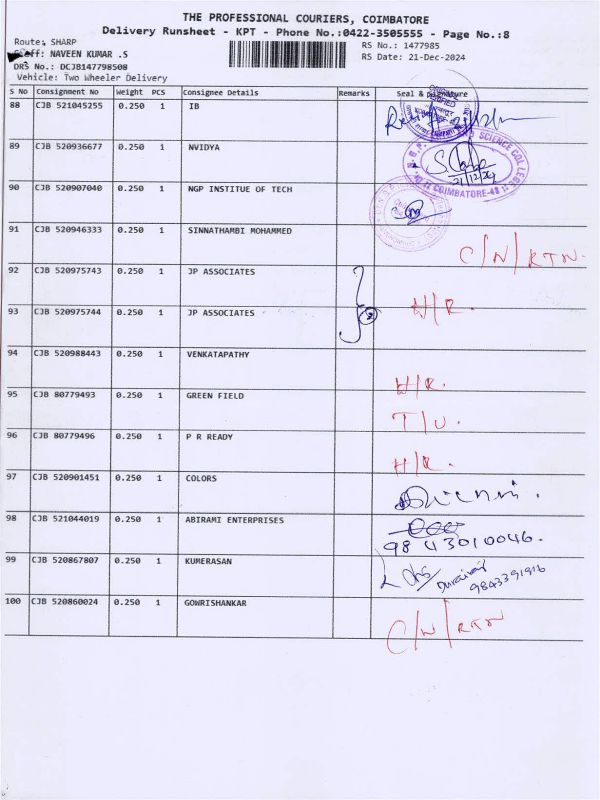 THE PROFESSIONAL COURIERS, COIMBATORE
Delivery Runsheet - KPT - Phone No.:0422-3505555 - Page No.:8
Route: SHARP
Staff: NAVEEN KUMAR .S
DRS No.: DCJB147798508
Vehicle: Two Wheeler Delivery
RS No.: 1477985
RS Date: 21-Dec-2024
S No Consignment No Weight PCS Consignee Details Remarks Seal & Signature
88 CJB 521045255 0.250 1 IB
89 CJB 520936677 0.250 1 NVIDYA
SCIENCE COLLEGE
21/12/24
COIMBATORE-48
90 CJB 520907040 0.250 1 NGP INSTITUE OF TECH
91 CJB 520946333 0.250 1 SINNATHAMBI MOHAMMED
C/N/RTN.
92 CJB 520975743 0.250 1 JP ASSOCIATES
93 CJB 520975744 0.250 1 JP ASSOCIATES
H/R.
94 CJB 520988443 0.250 1 VENKATAPATHY
H/R.
95 CJB 80779493 0.250 1 GREEN FIELD
T/U.
96 CJB 80779496 0.250 1 P R READY
H/R.
97 CJB 520901451 0.250 1 COLORS
98 CJB 521044019 0.250 1 ABIRAMI ENTERPRISES
98 43010046.
99 CJB 520867807 0.250 1 KUMERASAN
9843391916
100 CJB 520860024 0.250 1 GOWRISHANKAR
C/N/RTN